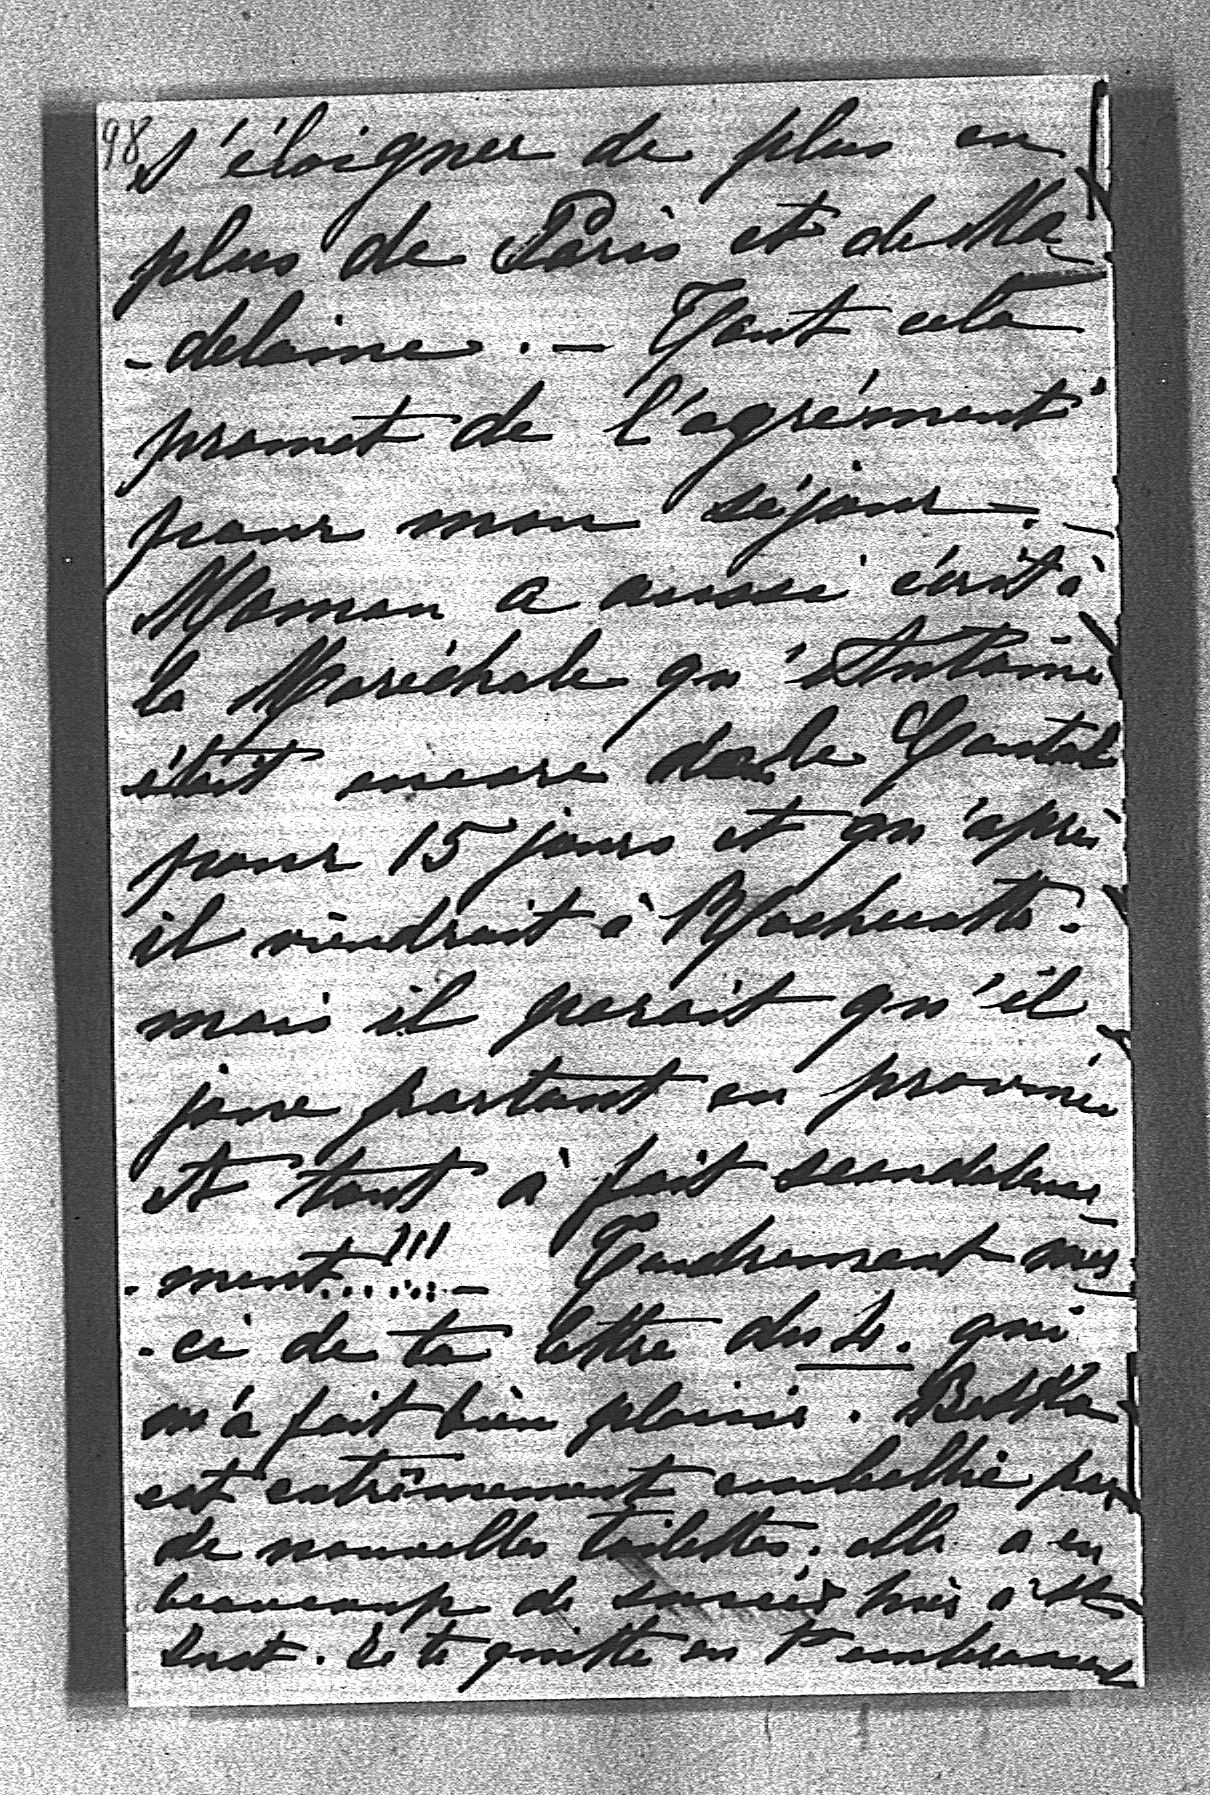 98
s'éloigner de plus en
plus de Paris et de Ma-
-delaine. — Tout cela
promet de l'agrément
pour mon séjour. —
Maman a aussi écrit à
la Maréchale qu'Antoine
était encore dans le Cantal
pour 15 jours et qu'après
il viendrait à
mais il parait qu'il
joue partout en province
et tout à fait scandaleuse
-ment......!!! — Tendrement mer-
-ci de ta lettre du qui
m'a fait bien plaisir.
est extrêmement embellie par
de nouvelles toilettes. elle a eu
beaucoup de succès hier à
Je te quitte en t'embrassant